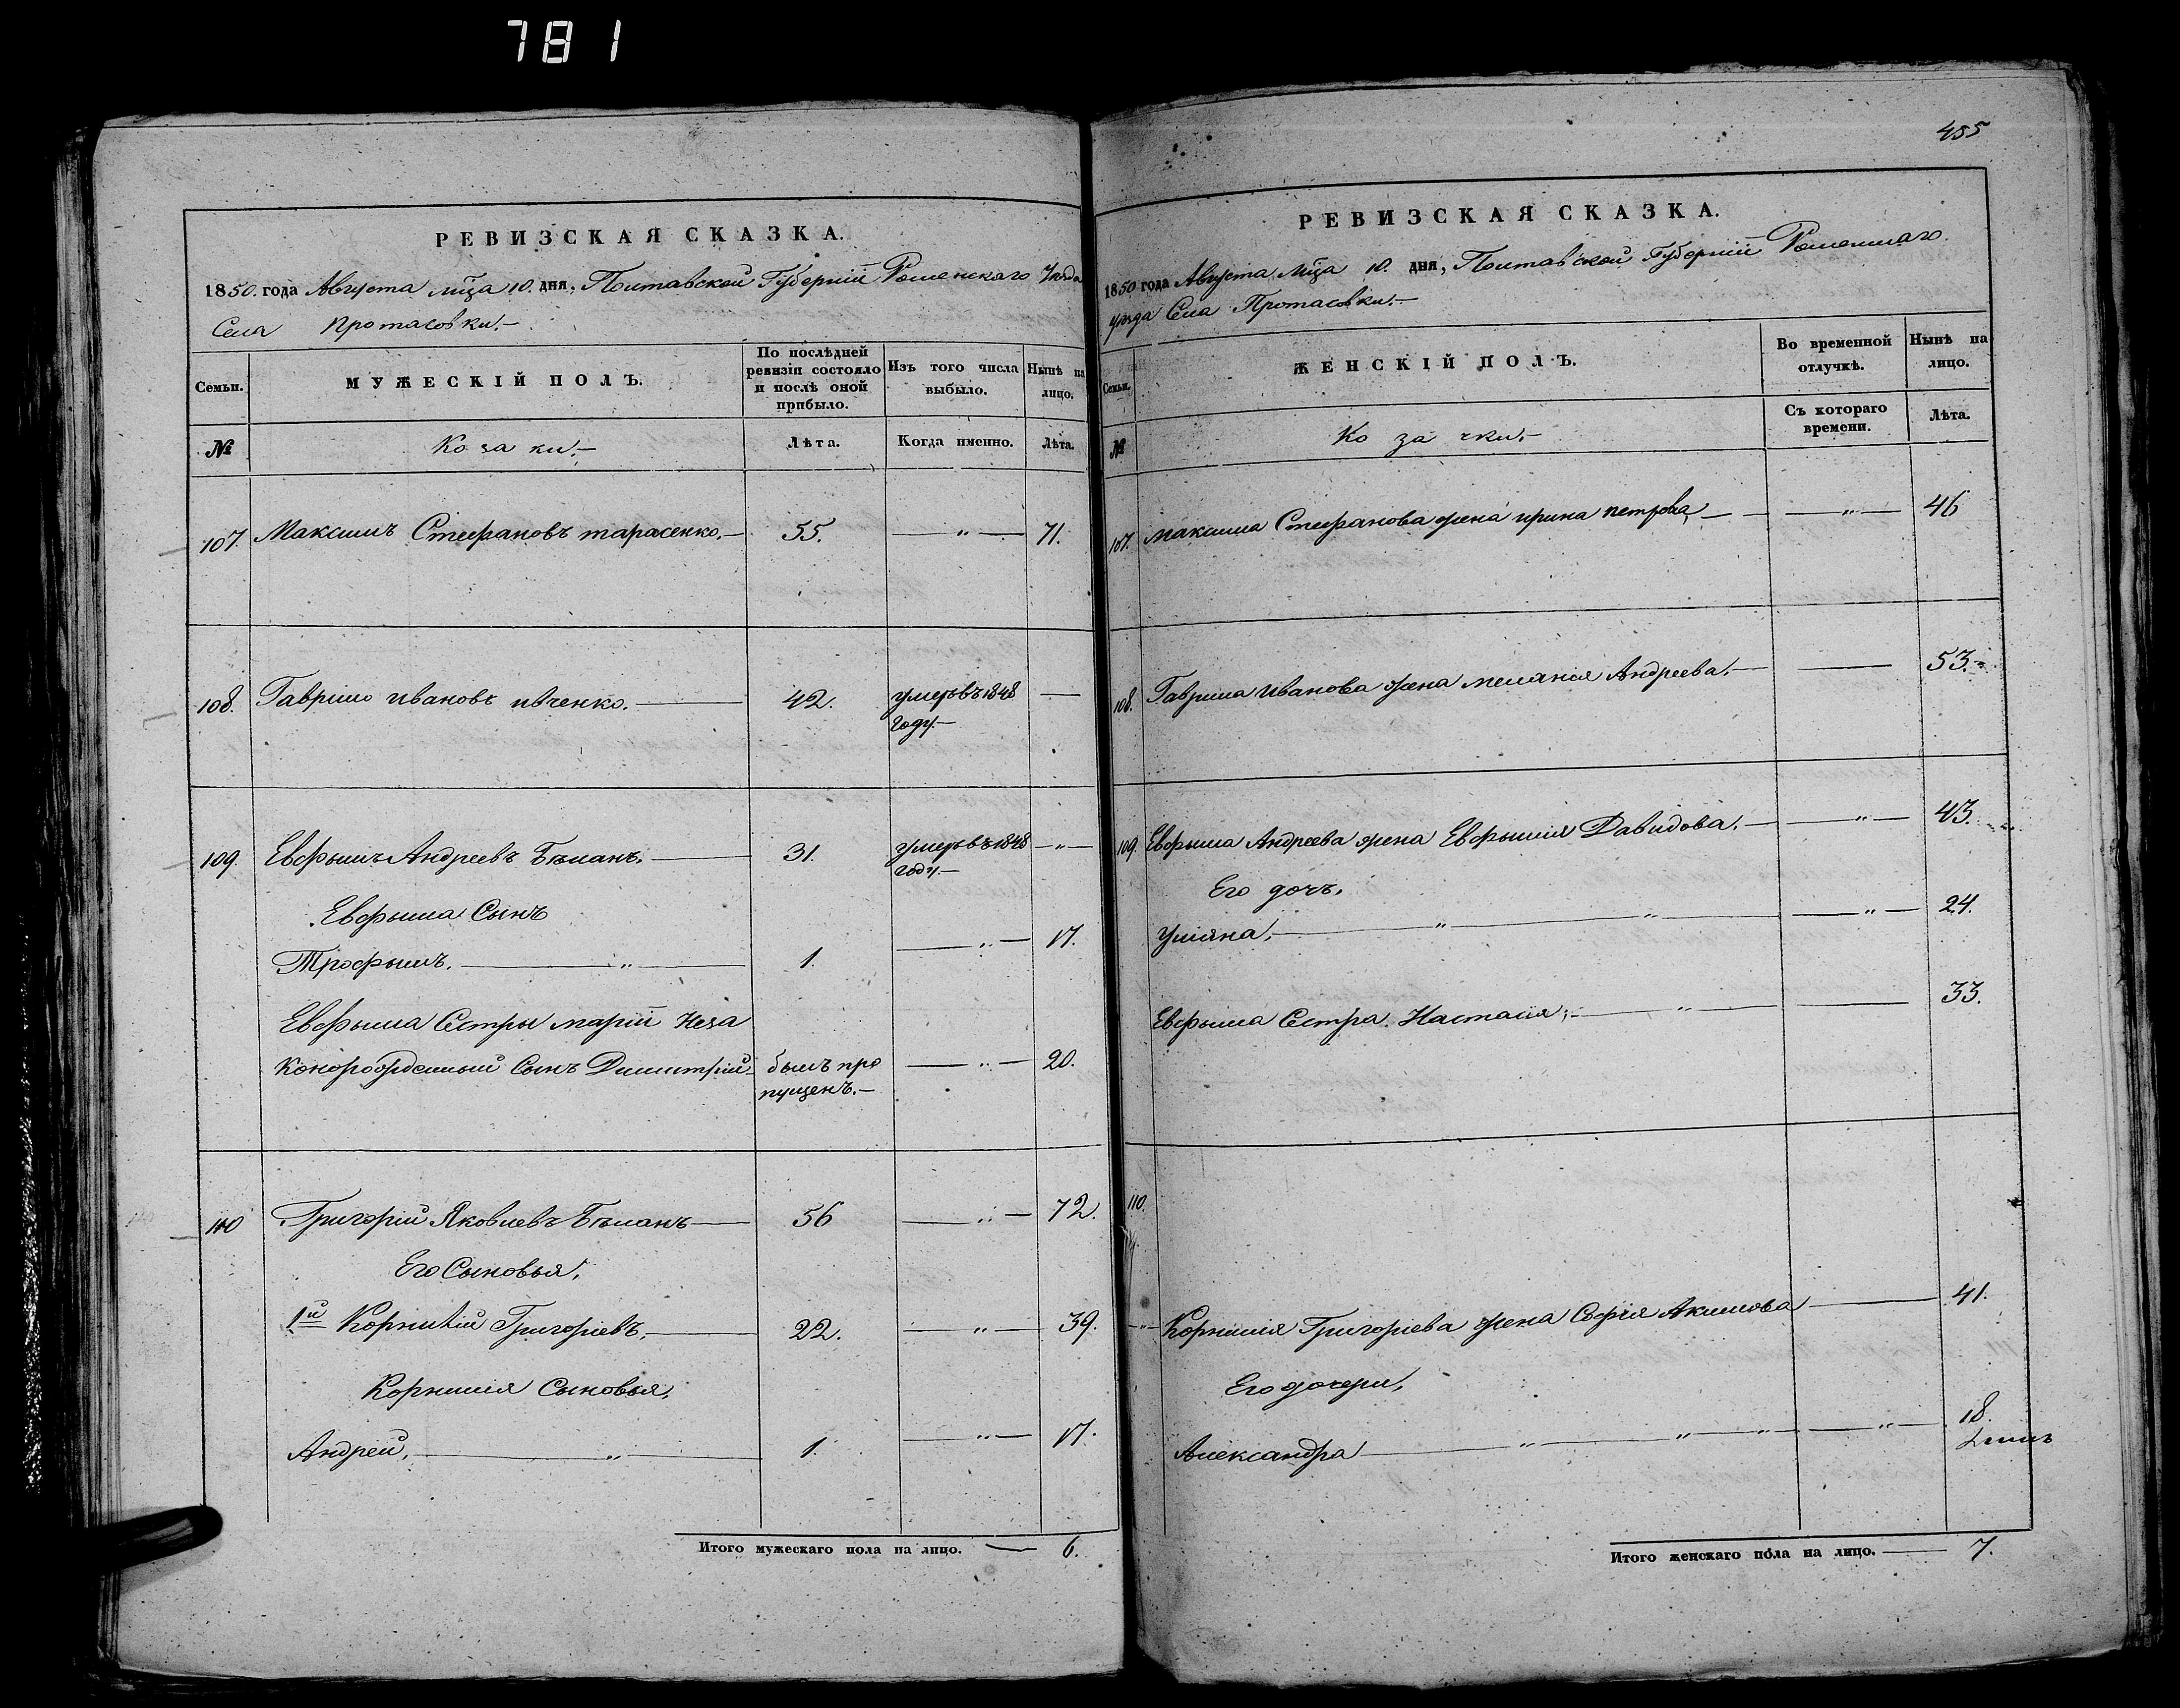 781
РЕВИЗСКАЯ СКАЗКА.
1850. года Августа мца 10. дня, Полтавской Губерніи Роменскаго Уѣзда
Села Протасовки.—
Семьи. МУЖЕСКІЙ ПОЛЪ. По послѣдней ревизіи состояло и послѣ оной прибыло. Изъ того числа выбыло. Нынѣ на лицо.
№ Козаки.— Лѣта. Когда именно. Лѣта.
107. Максимъ Стефановъ тарасенко.— 55. — " — 71.
108. Гаврило ивановъ ивченко.— 42. умеръ въ 1848 —
году.—
109. Евфымъ Андреевъ Бѣланъ.— 31. умеръ въ 1848 — " —
году.—
Евфыма Сынъ
Трофымъ. — " — 1. — " — 17.
Евфыма Сестры маріи Неза
конорожденный Сынъ Димитрій былъ про — " — 20.
пущенъ.—
110 Григорій Яковлевъ Бѣланъ— 56 — " — 72.
Его Сыновья,
1й Корнилій Григоріевъ.— 22. — " — 39.
Корнилія Сыновья,
Андрей, — " — 1. — " — 17.
Итого мужескаго пола на лицо. — 6.
455
РЕВИЗСКАЯ СКАЗКА.
1850 года Августа мца 10. дня, Полтавской Губерніи Роменскаго
уѣзда Села Протасовки.—
Семьи. ЖЕНСКІЙ ПОЛЪ. Во временной отлучкѣ. Нынѣ на лицо.
№ Козачки.— Съ котораго времени. Лѣта.
107. максима Стефанова жена ирина петрова — — " — 46
108. Гаврила Иванова жена меланія Андреева.— — 53.
109. Евфыма Андреева жена Евфымія Давидова.— — " — 43.
Его дочь,
Уліяна, — " — " — — " — 24.
Евфыма Сестра Настасія; — " — — 33.
110.
— " — Корнилія Григоріева жена Софія Акимова — 41.
Его дочери,
Александра — " — " — " — — " — 18.
Итого женскаго пола на лицо. — 7.